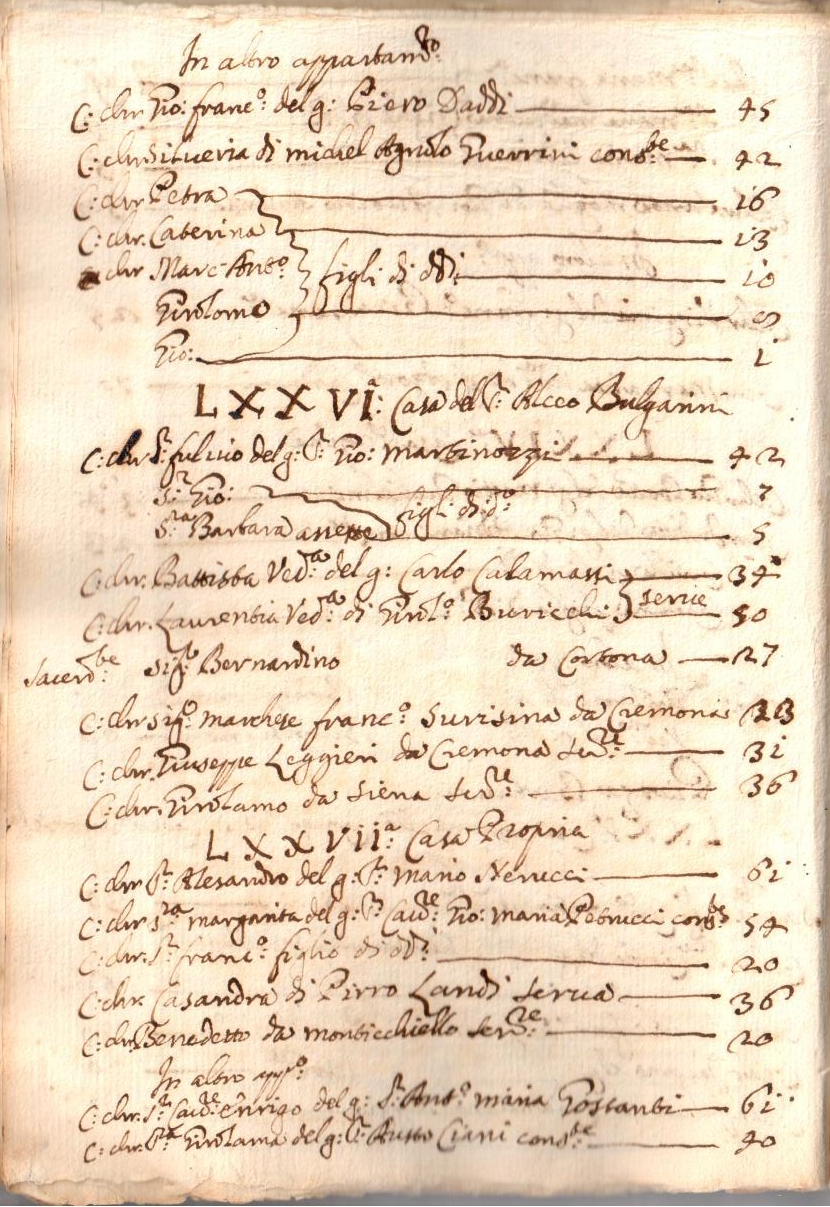 In altro appartam.to
C: chr: Gio: franc.o del g: Piero Daddi 45
C: chr Silveria di michel Agnolo Guerrini cons.te 42
C: chr Petra 16
C: chr. Caterina 13
chr Marc Ant.o figli di ddi 10
Girolomo 8
Gio: 1
LXXVI.a Casa del S.r Alceo Bulgarini
C: chr S.r fulvio del g: S.r Gio: martinozzi 42
S.r Gio: 7
S.ra Barbara figli di d.o 5
C: chr. Battista Ved.a del g: Carlo Calamassi 34
C: chr. Laurentia Ved.a di Girol.o Buricchi serve 50
Sacerd.te Sig.r Bernardino da Cortona 27
C: chr sig.r marchese franc.o da Cremona 23
C: chr. Giuseppe Leggieri da Cremona ser.re 31
C: chr. Girolamo da Siena ser.re 36
LXXVII.a Casa Propria
C: chr S.r Alesandro del g: S.r Mario Nerucci 61
C: chr S.ra margarita del g: S.r Cav.re Gio: maria Petrucci cons.te 54
C: chr. S.r franc.o figlio di dd.i 20
C: chr. Casandra di Pirro Landi serva 36
C: chr Benedetto da monticchiello ser.re 20
In altro app.to
C: chr. S.r Cav.re enrigo del g: S.r Ant.o maria Gostanti 61
C: chr. S.ra Girolama del g: S.r Austo Ciani cons.te 40